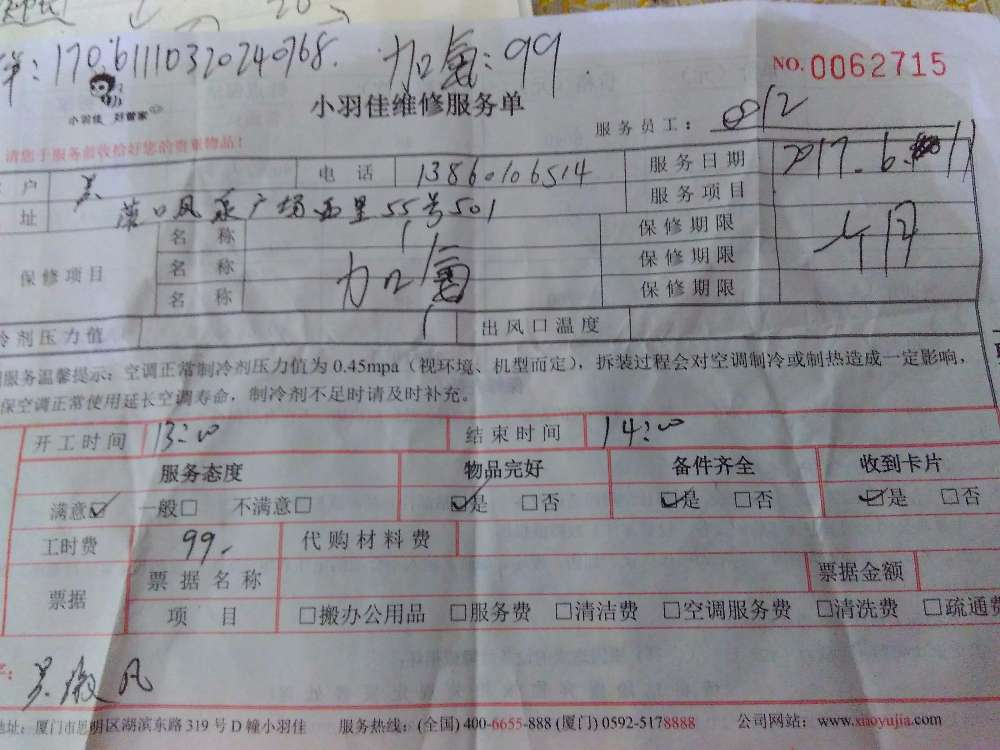 单：17061110320240768. 加氟：99
NO. 0062715
小羽佳 好管家
小羽佳维修服务单
服务员工：0812
请您于服务前收拾好您的贵重物品！
户 吴 电话 13860106514 服务日期 2017.6.11
址 凤泉广场西里55号501 服务项目
保修项目 名称 加氟 保修期限
名称 保修期限
名称 保修期限
冷剂压力值 出风口温度
服务温馨提示：空调正常制冷剂压力值为 0.45mpa（视环境、机型而定），拆装过程会对空调制冷或制热造成一定影响，
保空调正常使用延长空调寿命，制冷剂不足时请及时补充。
开工时间 13:00 结束时间 14:00
服务态度 物品完好 备件齐全 收到卡片
满意☑ 一般□ 不满意□ ☑是 □否 ☑是 □否 ☑是 □否
工时费 99. 代购材料费
票据 票据名称 票据金额
项目 □搬办公用品 □服务费 □清洁费 □空调服务费 □清洗费 □疏通费
吴微风
地址：厦门市思明区湖滨东路 319 号 D 幢小羽佳 服务热线：(全国) 400-6655-888 (厦门) 0592-5178888 公司网站：www.xiaoyujia.com